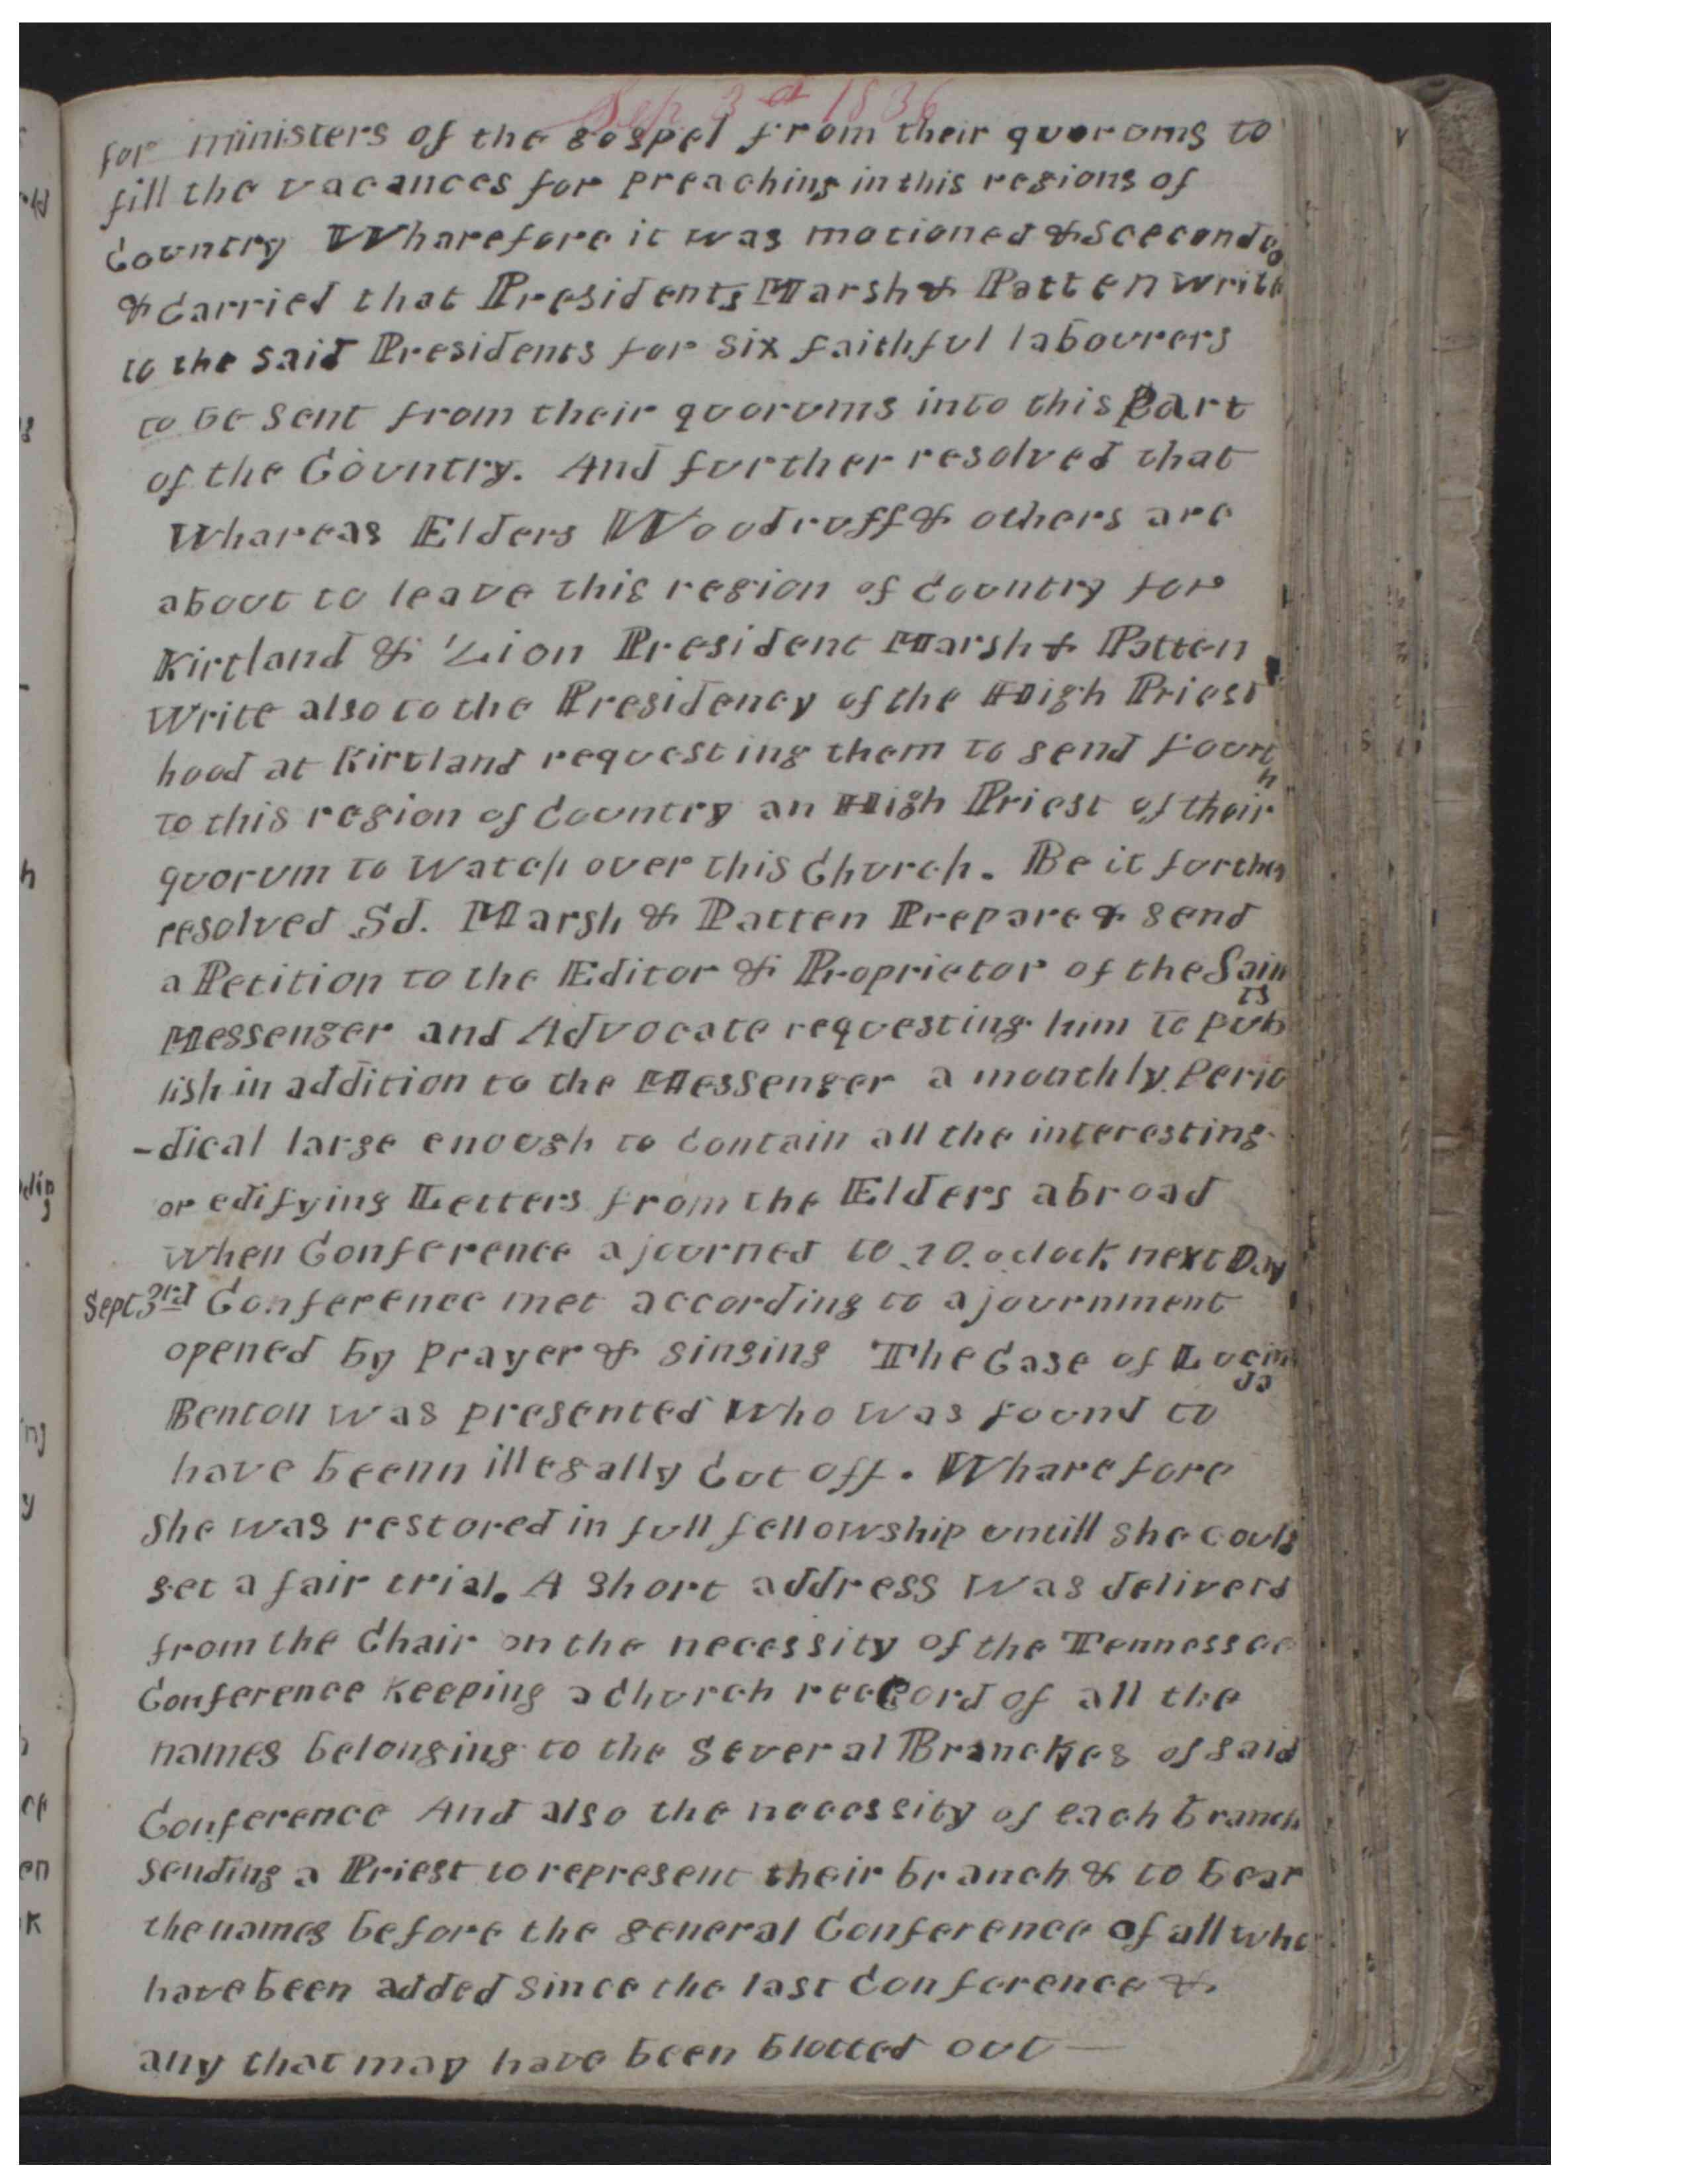 Sep 3d 1836
for ministers of the gospel from their quorums to
fill the vacances for preaching in this regions of
Country Wharefore it was motioned & Sceconded
& Carried that Presidents Marsh & Patten write
to the said Presidents for six faithful labourers
to be sent from their quorums into this Part
of the Country. And further resolved that
Whareas Elders Woodruff & others are
about to leave this region of Country for
Kirtland & Zion President Marsh & Patten
Write also to the Presidency of the High Priest
hood at Kirtland requesting them to send fourth
to this region of Country an High Priest of their
quorum to Watch over this Church. Be it further
resolved Sd. Marsh & Patten Prepare & send
a Petition to the Editor & Proprietor of the Saints
Messenger and Advocate requesting him to pub
lish in addition to the Messenger a monthly Perio
-dical large enough to Contain all the interesting
or edifying Letters from the Elders abroad
When Conference ajourned to 10. oclock next Day
Sept 3rd Conference met according to ajournment
opened by prayer & singing The Case of Lucinda
Benton was presented Who was found to
have beenn illegally Cut off. Wharefore
She was restored in full fellowship untill she could
get a fair trial. A short address was deliverd
from the Chair on the necessity of the Tennessee
Conference Keeping a Church reccord of all the
names belonging to the Several Branches of said
Conference And also the necessity of each branch
sending a Priest to represent their branch & to bear
the names before the general Conference of all who
have been added since the last Conference &
any that may have been blotted out —